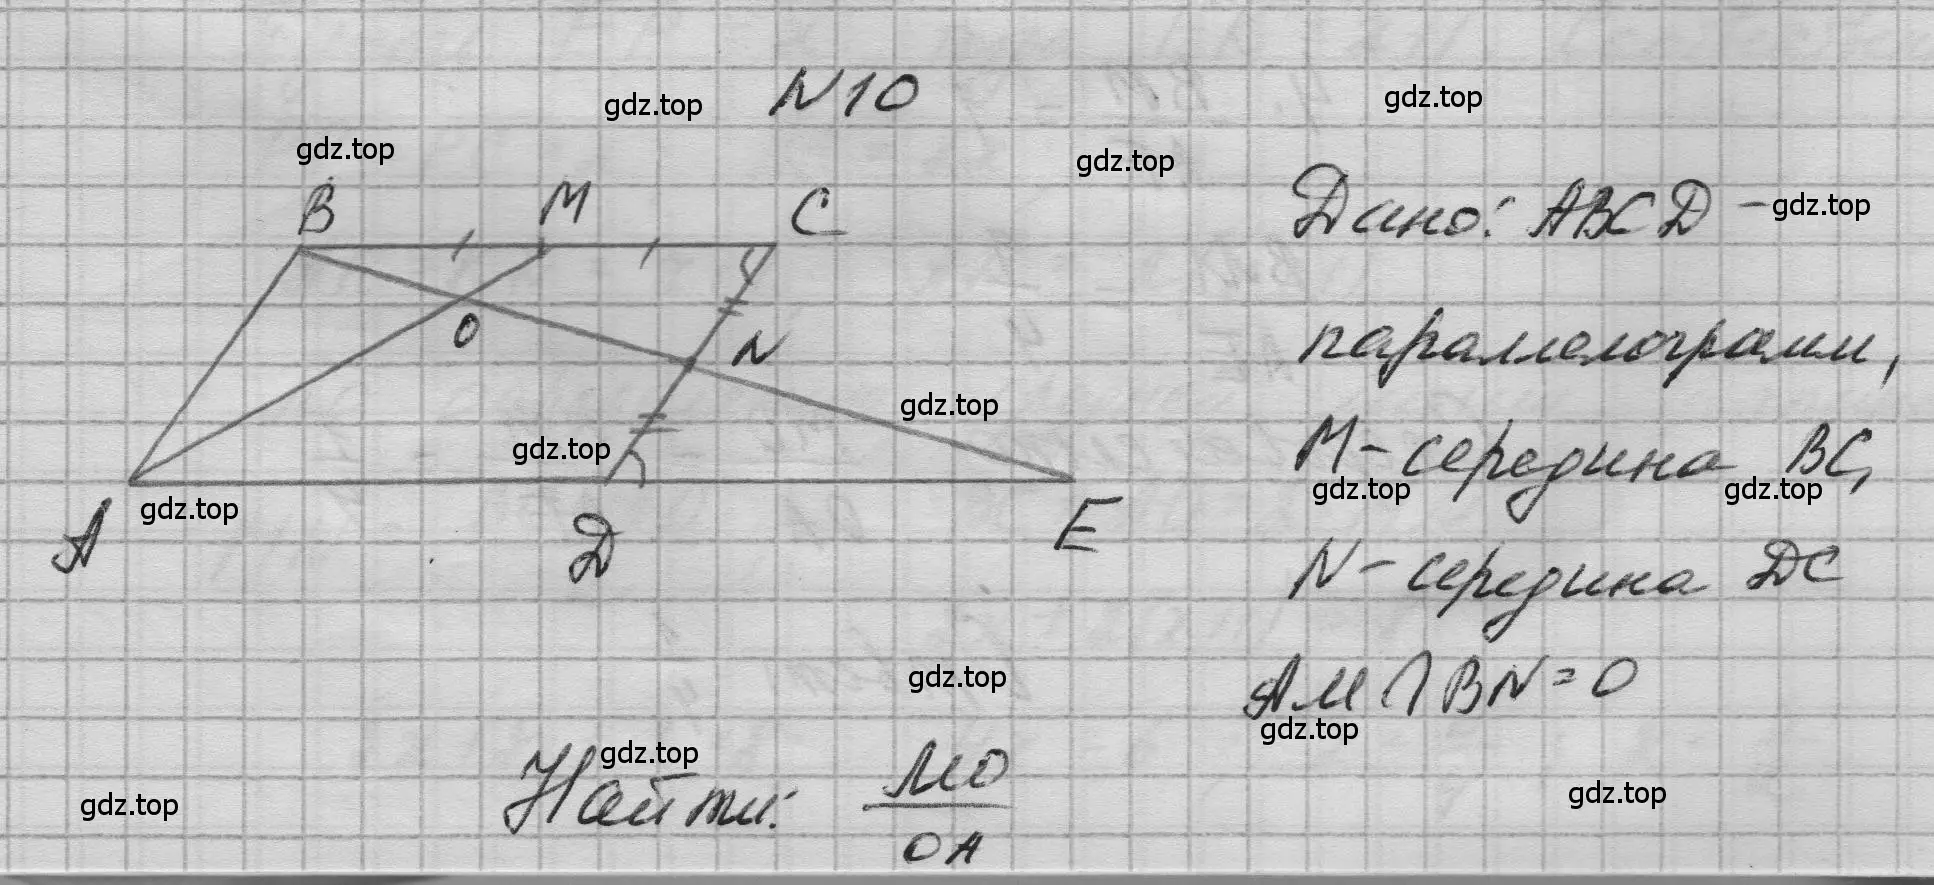 N10
gdz.top
gdz.top
gdz.top
gdz.top
B M C
Дано: ABCD – gdz.top
O N
параллелограмм,
gdz.top
gdz.top
M – середина BC,
gdz.top
gdz.top
gdz.top
A D E
N – середина DC
gdz.top
AM ∩ BN = O
gdz.top
gdz.top
Найти: MO
OA
gdz.top
gdz.top